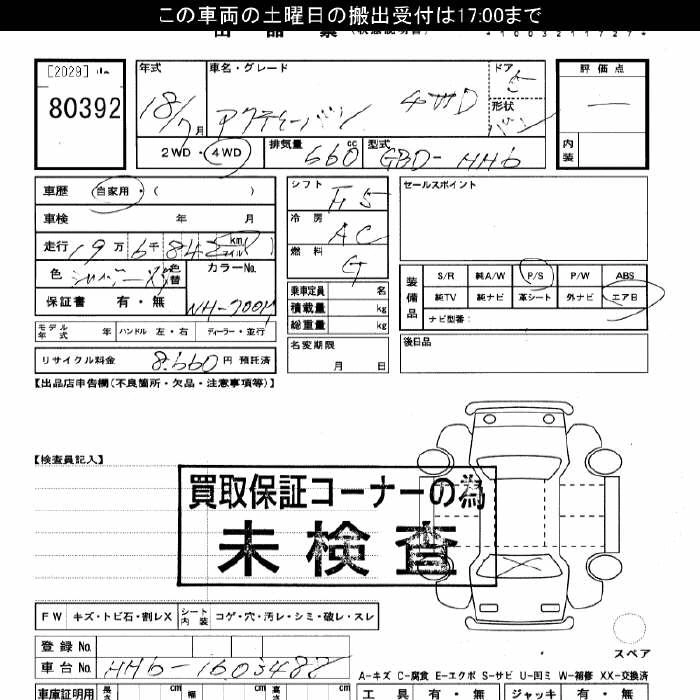 この車両の土曜日の搬出受付は17:00まで
出品票(状態説明書) *1003211727*
[2029]
80392
年式 車名・グレード ドア 5
18/7月 アクティーバン 4WD 形状 バン
評価点
内装
2WD・4WD 排気量 660cc 型式 GBD-HH6
車歴 自家用・( )
車検 年 月
走行 19万6千842 km マイル
色 シルバーM 色替 カラーNo.
保証書 有・無 NH-700M
モデル年式 年 ハンドル 左・右 ディーラー・並行
リサイクル料金 8.660円 預託済
シフト F5
冷房 AC
燃料 G
乗車定員 名
積載量 kg
総重量 kg
名変期限
月 日
セールスポイント
装備品 S/R 純A/W P/S P/W ABS
純TV 純ナビ 革シート 外ナビ エアB
ナビ型番:
後日品
【出品店申告欄(不良箇所・欠品・注意事項等)】
【検査員記入】
買取保証コーナーの為
未検査
FW キズ・トビ石・割レX シート内装 コゲ・穴・汚レ・シミ・破レ・スレ
スペア
登録No.
車台No. HH6-1603482
A-キズ C-腐食 E-エクボ S-サビ U-凹ミ W-補修 XX-交換済
車庫証明用 長さ cm 幅 cm 高さ cm 工具 有・無 ジャッキ 有・無